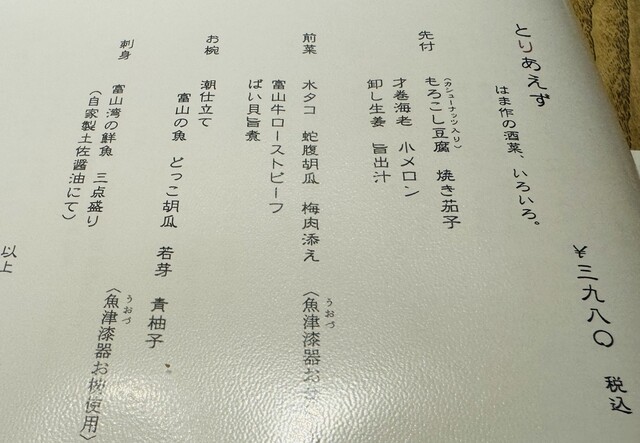 とりあえず
はま作の酒菜、いろいろ。
¥三九八〇 税込
先付
(カシューナッツ入り)
もろこし豆腐 焼き茄子
才巻海老 小メロン
卸し生姜 旨出汁
前菜
水タコ 蛇腹胡瓜 梅肉添え
うおづ
〈魚津漆器お
富山牛ローストビーフ
ばい貝旨煮
お椀
潮仕立て
富山の魚 どっこ胡瓜 若芽 青柚子
うおづ
〈魚津漆器お椀使用〉
刺身
富山湾の鮮魚 三点盛り
(自家製土佐醤油にて)
以上